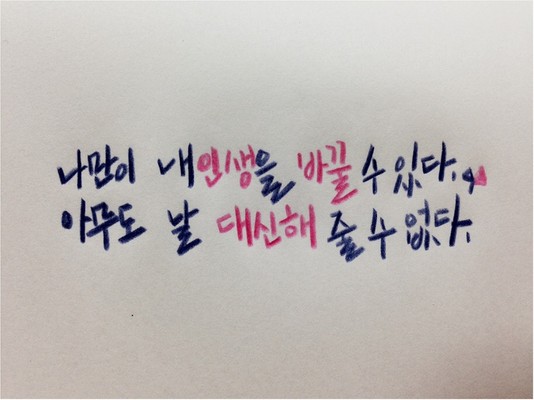 나만이 내인생을 바꿀 수 있다.
아무도 날 대신해 줄 수 없다.